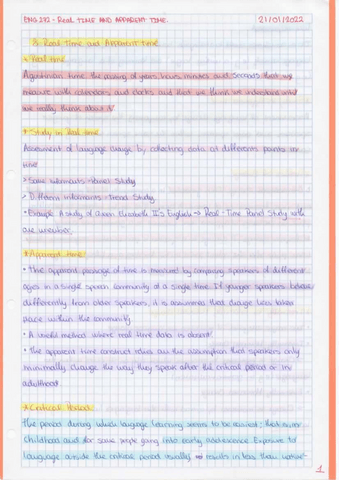 ENG 272 - REAL TIME AND APPARENT TIME. 21/01/2022
8. Real Time and Apparent time
* Real time
Augustinian time: the passing of years, hours, minutes and seconds that we
measure with calendars and clocks and that we think we understand until
we really think about it
* Study in Real time
Assessment of language change by collecting data at differents points in
time
> Same informants - Panel Study
> Different informants - Trend Study
• Example: A study of Queen Elizabeth II's English → Real-Time Panel Study with
one member.
* Apparent time
• The apparent passage of time is measured by comparing speakers of different
ages in a single speech community at a single time. If younger speakers behave
differently from older speakers, it is assumed that change has taken
place within the community
• A useful method where real time data is absent
• The apparent time construct relies on the assumption that speakers only
minimally change the way they speak after the critical period or in
adulthood
* Critical Period
The period during which language learning seems to be easiest: that over
childhood and for some people going into early adolescence. Exposure to
language outside the critical period usually results in less than native-
1